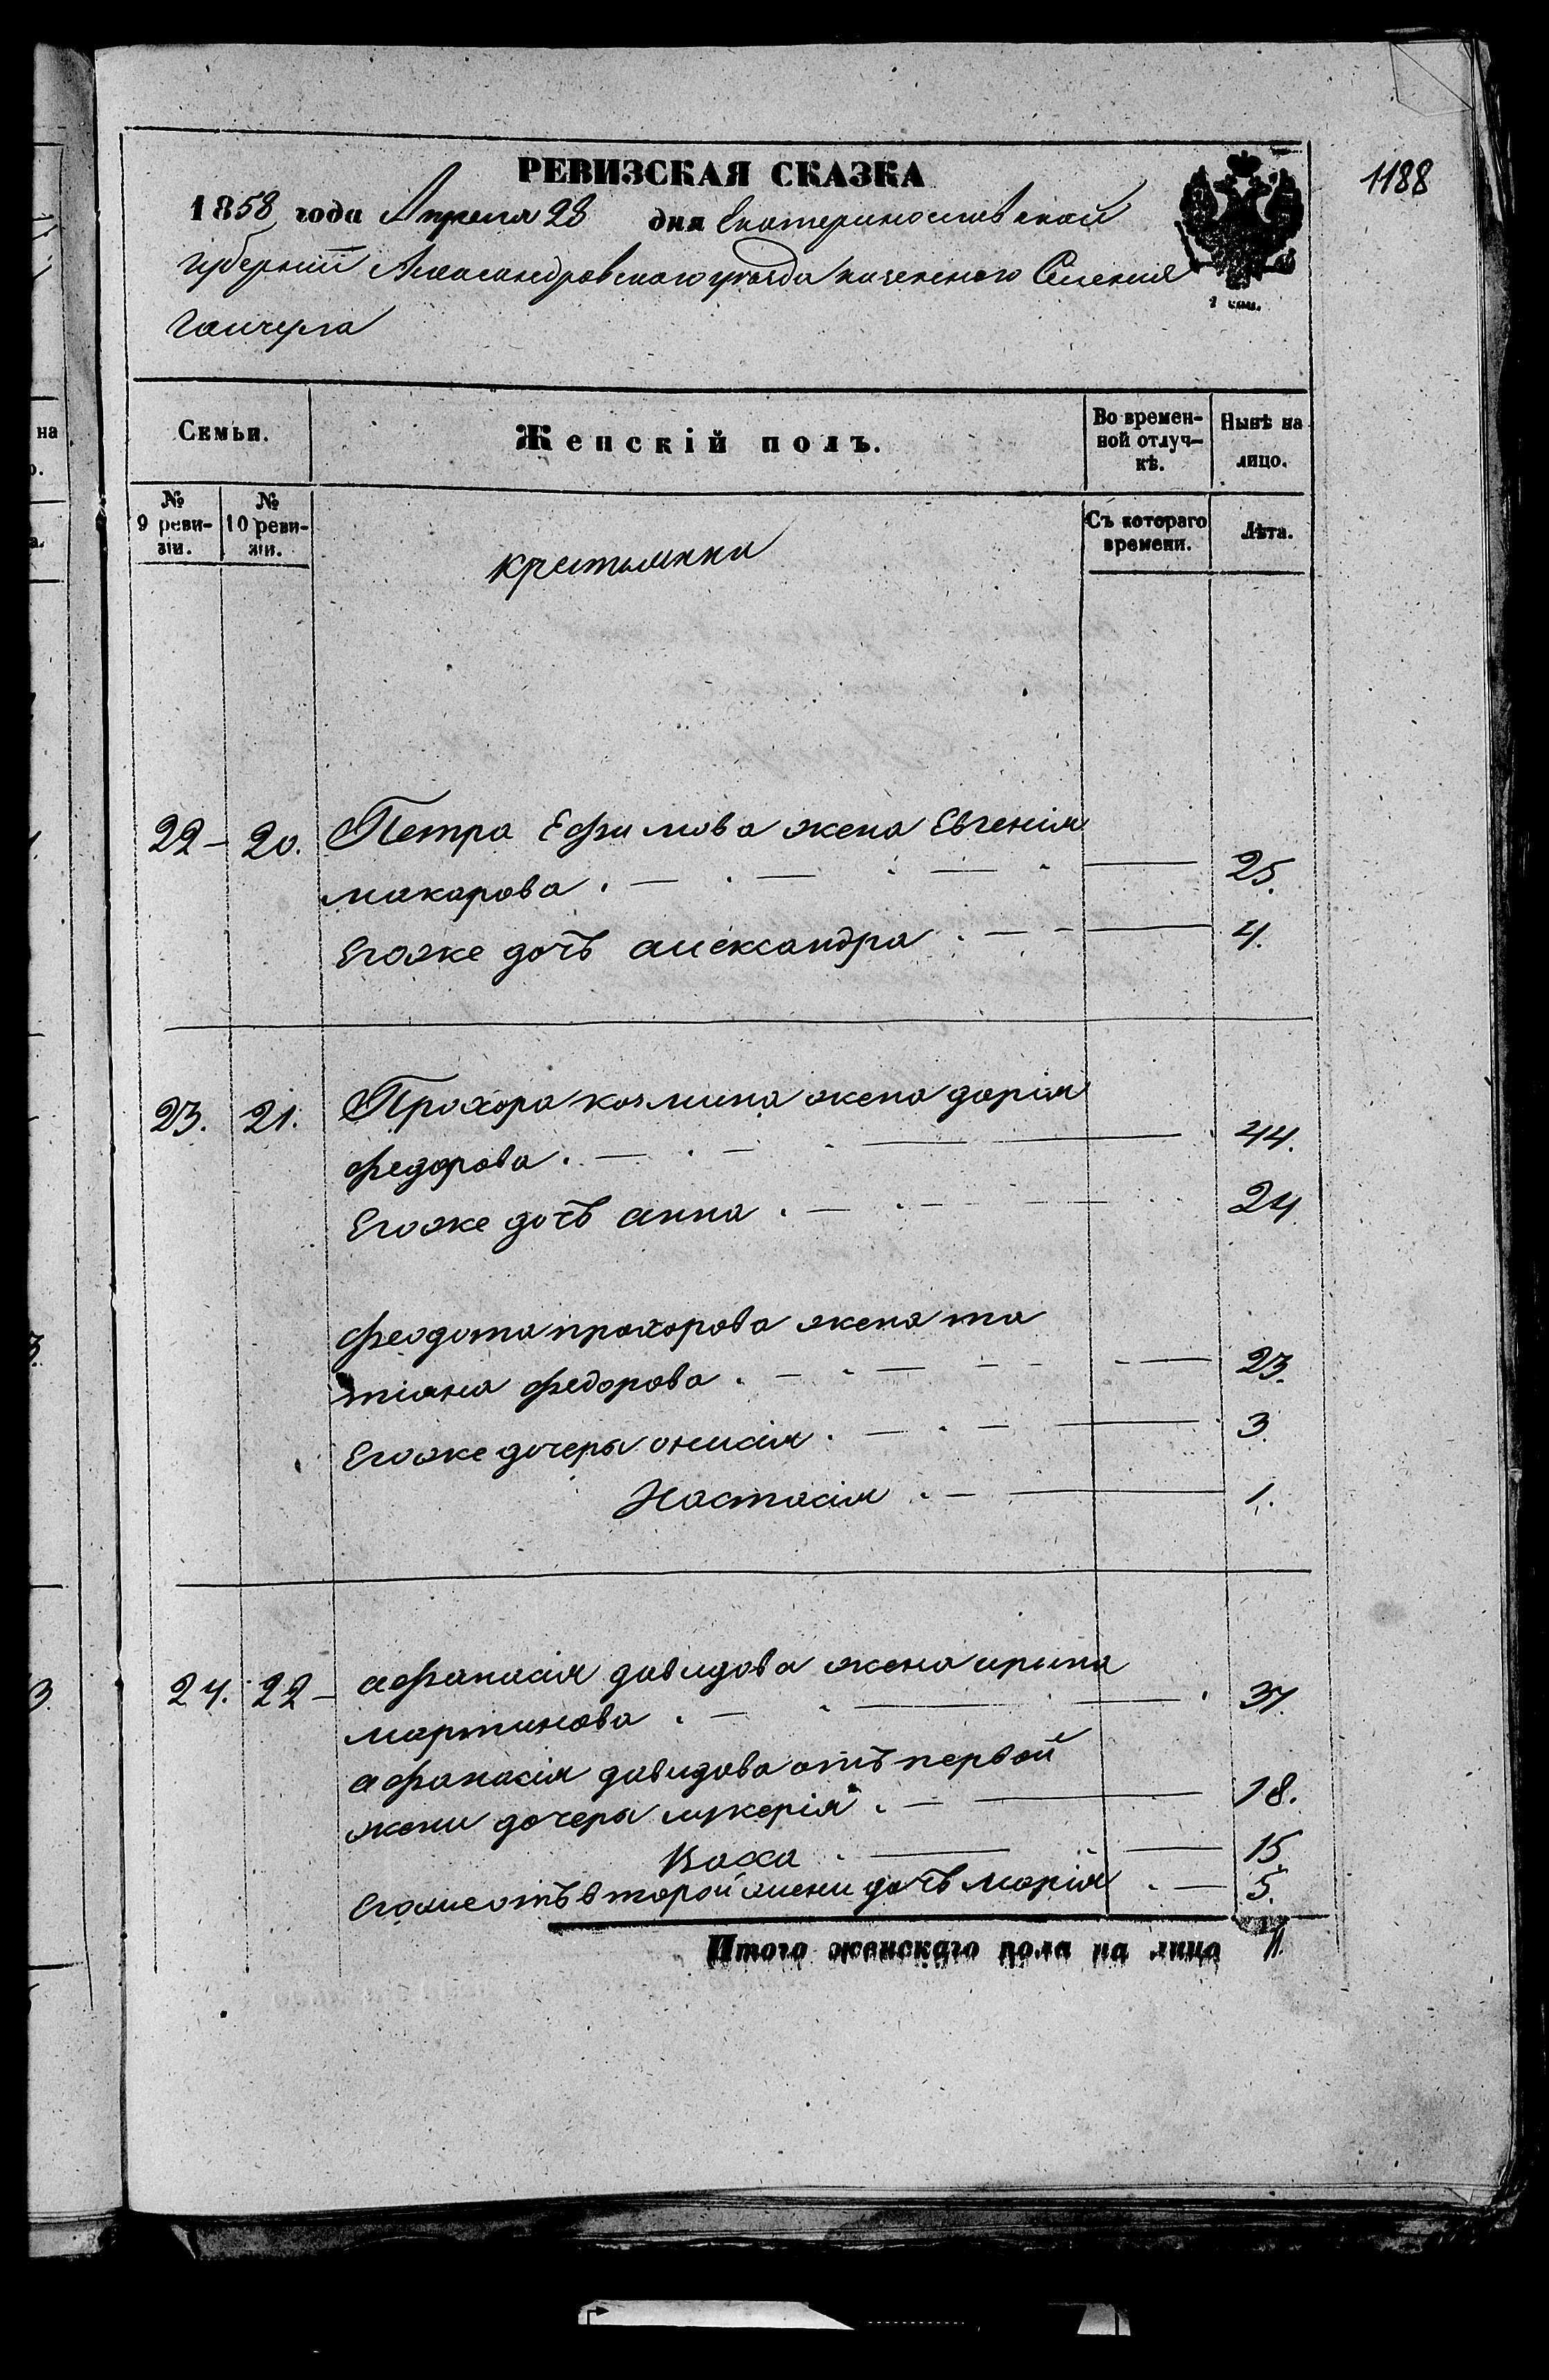 1188
РЕВИЗСКАЯ СКАЗКА
1858 года Апреля 28 дня Екатеринославской
Губернiи Александровского уѣзда казенного Селения
Гайчула
1 коп.
Семьи.
Женскiй полъ.
Во времен-
ной отлуч-
кѣ.
Нынѣ на
лицо.
№
9 реви-
зiи.
№
10 реви-
зiи.
Съ котораго
времени.
Лѣта.
крестьянки
22 - 20. Петра Ефимова жена Евгенiя
макарова 25.
Егоже дочь александра 4.
23. 21. Прохора козмина жена дарiя
федорова 44.
Егоже дочь анна 24
феодота прохорова жена та
тiяна федорова 23.
Егоже дочеры оксиiя 3.
Настасiя 1.
24. 22 - афанасiя давидова жена ирина
мартинова 37.
афанасiя давидова отъ первой
жени дочеры лукерiя 18.
Васса 15
Егоже отъ второй жени дочь марiя 5.
Итого женскаго пола на лицо 11.
на